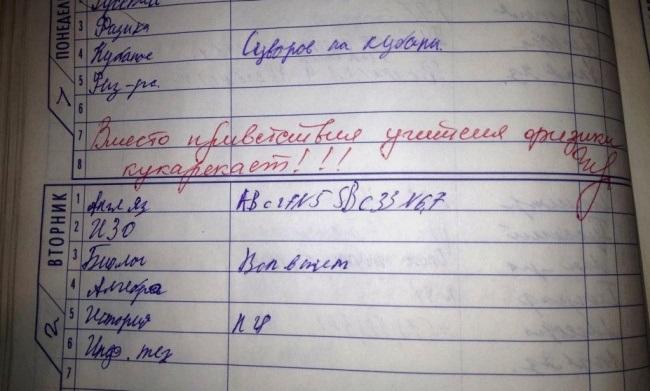 ПОНЕДЕЛ
3 Физика
4 Кубанов Суворов на кубани.
5 Физ-ра.
6
7 Вместо приветствия учителя физики
8 кукарекает!!!
1
ВТОРНИК
1 Англ яз АВ с 27 N5 SB с 33 N6,7
2 ИЗО
3 Биолог Воп в тет
4 Алгебра
5 История
6 Инф. тех
7
2